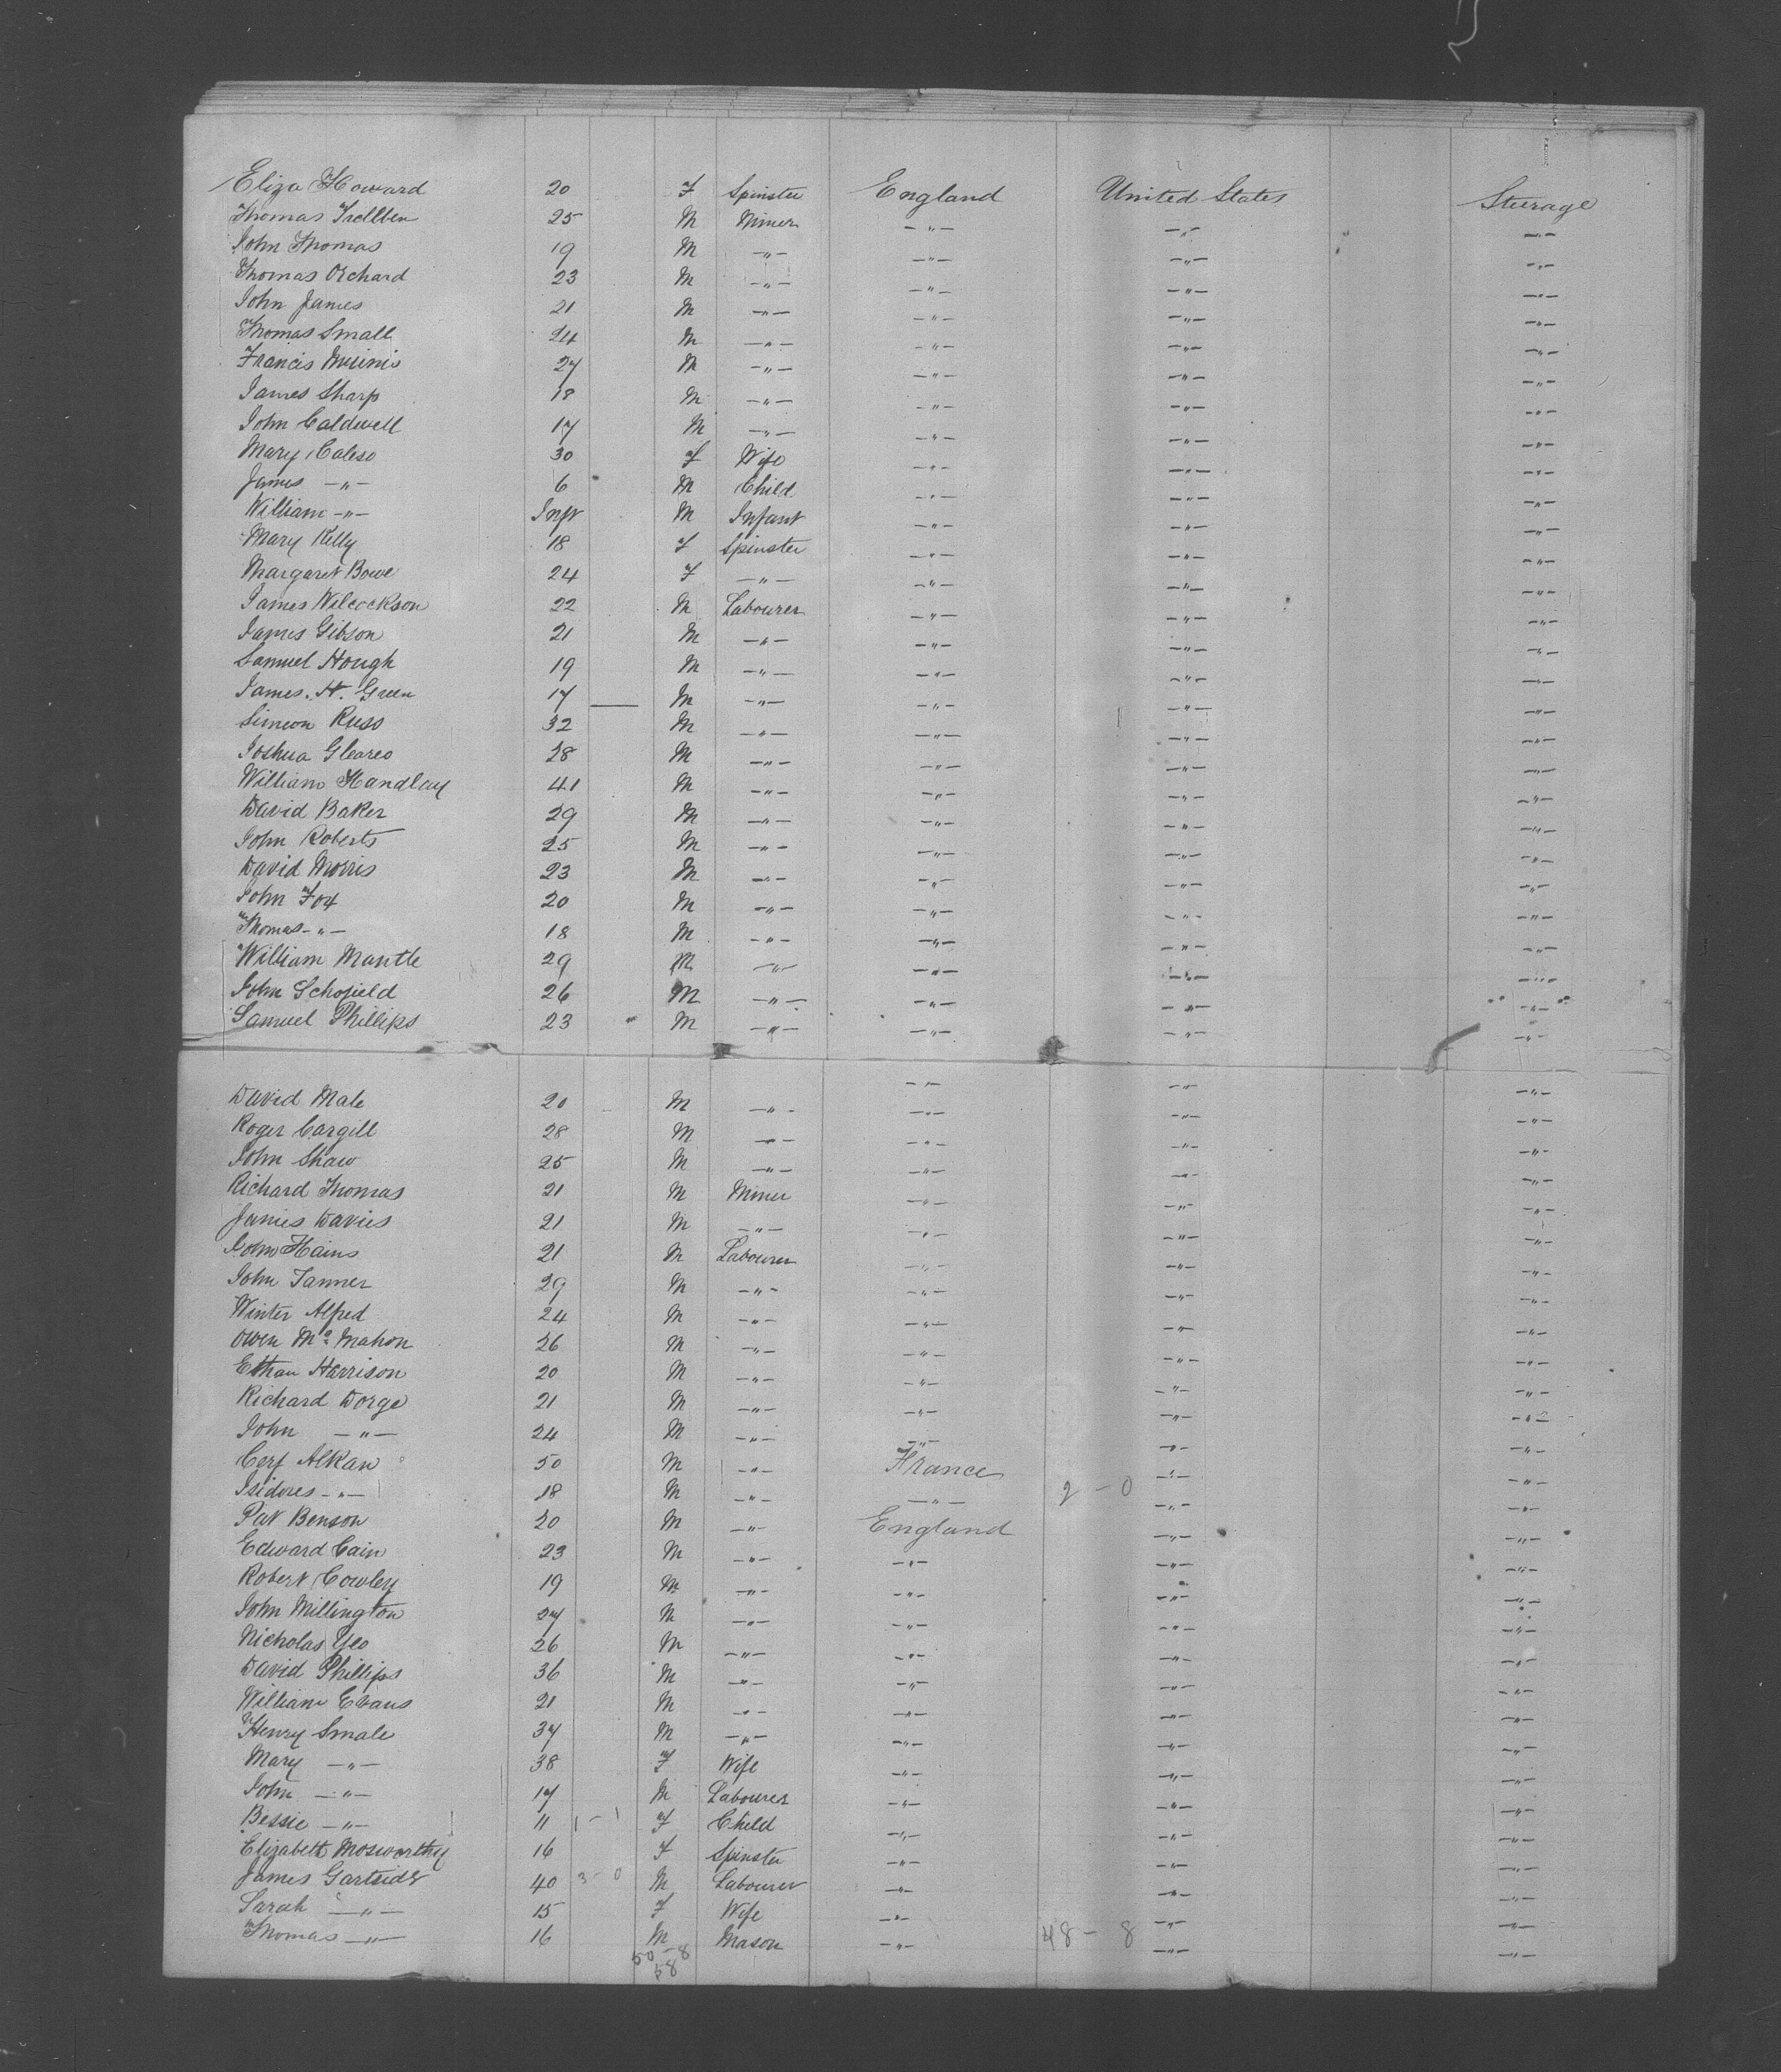 Eliza Howard 20 F Spinster England United States Steerage
Thomas Trellben 25 M Miner -"- -"- -"-
John Thomas 19 M -"- -"- -"- -"-
Thomas Orchard 23 M -"- -"- -"- -"-
John James 21 M -"- -"- -"- -"-
Thomas Small 24 M -"- -"- -"- -"-
Francis 27 M -"- -"- -"- -"-
James Sharp 18 M -"- -"- -"- -"-
John Caldwell 17 M -"- -"- -"- -"-
Mary 30 F Wife -"- -"- -"-
James -"- 6 M Child -"- -"- -"-
William -"- Inft M Infant -"- -"- -"-
Mary Kelly 18 F Spinster -"- -"- -"-
Margaret Bowe 24 F -"- -"- -"- -"-
James Wilcockson 22 M Labourer -"- -"- -"-
James Gibson 21 M -"- -"- -"- -"-
Samuel Hough 19 M -"- -"- -"- -"-
James. H. Green 17 — M -"- -"- -"- -"-
Simeon Russ 32 M -"- -"- -"- -"-
Joshua 28 M -"- -"- -"- -"-
William Handley 41 M -"- -"- -"- -"-
David Baker 29 M -"- -"- -"- -"-
John Roberts 25 M -"- -"- -"- -"-
David Morris 23 M -"- -"- -"- -"-
John Fox 20 M -"- -"- -"- -"-
Thomas -"- 18 M -"- -"- -"- -"-
William Mantle 29 M -"- -"- -"- -"-
John Schofield 26 M -"- -"- -"- -"-
Samuel Phillips 23 M -"- -"- -"- -"-
David Male 20 M -"- -"- -"- -"-
Roger Cargill 28 M -"- -"- -"- -"-
John Shaw 25 M -"- -"- -"- -"-
Richard Thomas 21 M Miner -"- -"- -"-
James Davies 21 M -"- -"- -"- -"-
John Hains 21 M Labourer -"- -"- -"-
John Tanner 29 M -"- -"- -"- -"-
Winter Alfred 24 M -"- -"- -"- -"-
Owen Mc Mahon 26 M -"- -"- -"- -"-
Ethan Harrison 20 M -"- -"- -"- -"-
Richard Dorge 21 M -"- -"- -"- -"-
John -"- 24 M -"- -"- -"- -"-
Cerf Alkan 50 M -"- France -"- -"-
Isidores -"- 18 M -"- -"- 2 - 0 -"- -"-
Pat Benson 20 M -"- England -"- -"-
Edward Cain 23 M -"- -"- -"- -"-
Robert Cowley 19 M -"- -"- -"- -"-
John Millington 27 M -"- -"- -"- -"-
Nicholas Yeo 26 M -"- -"- -"- -"-
David Phillips 36 M -"- -"- -"- -"-
William Evans 21 M -"- -"- -"- -"-
Henry Smale 37 M -"- -"- -"- -"-
Mary -"- 38 F Wife -"- -"- -"-
John -"- 17 M Labourer -"- -"- -"-
Bessie -"- 11 1 - 1 F Child -"- -"- -"-
Elizabeth Mosworthy 16 F Spinster -"- -"- -"-
James Gartside 40 3 - 0 M Labourer -"- -"- -"-
Sarah -"- 15 F Wife -"- -"- -"-
Thomas -"- 16 M Mason -"- 48 - 8 -"- -"-
50 - 8
58